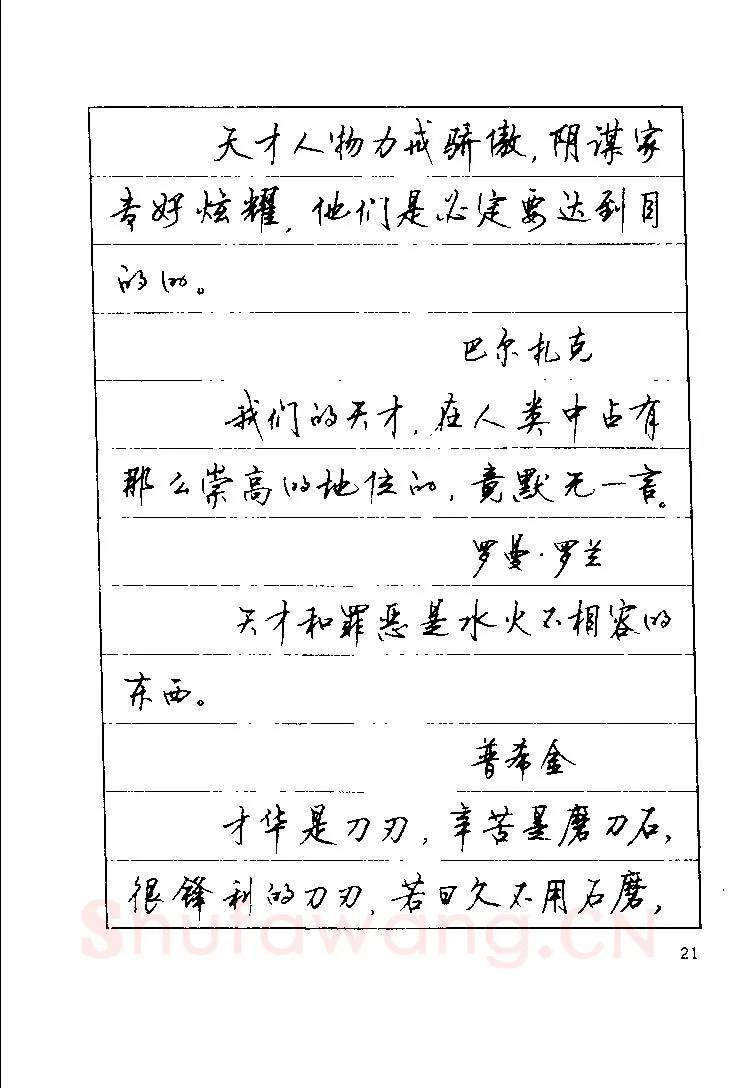 天才人物力戒骄傲，阴谋家
专好炫耀，他们是必定要达到目
的的。
巴尔扎克
我们的天才，在人类中占有
那么崇高的地位的，竟默无一言。
罗曼·罗兰
天才和罪恶是水火不相容的
东西。
普希金
才华是刀刃，辛苦是磨刀石，
很锋利的刀刃，若日久不用石磨，
Shufawang.CN
21